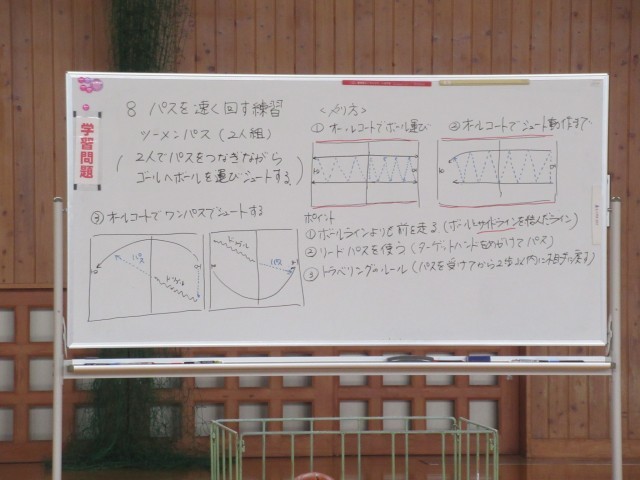 学習問題
8 パスを速く回す練習
ツーメンパス (2人組)
(2人でパスをつなぎながら
ゴールへボールを運びシュートする)
<やり方>
① オールコートでボール運び
② オールコートでシュート動作まで
③ オールコートでワンパスでシュートする
パス
ドリブル
ドリブル
パス
ポイント
①ボールラインよりも前を走る (ボールとサイドラインを結んだライン)
②リードパスを使う (ターゲットハンドをめがけてパス)
③トラベリングのルール (パスを受けてから2歩以内に相手に戻す)